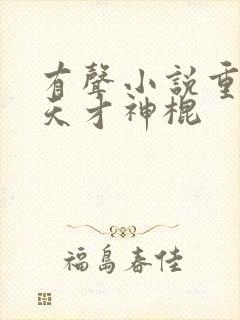 有聲小說重
天才神棍
福島春佳